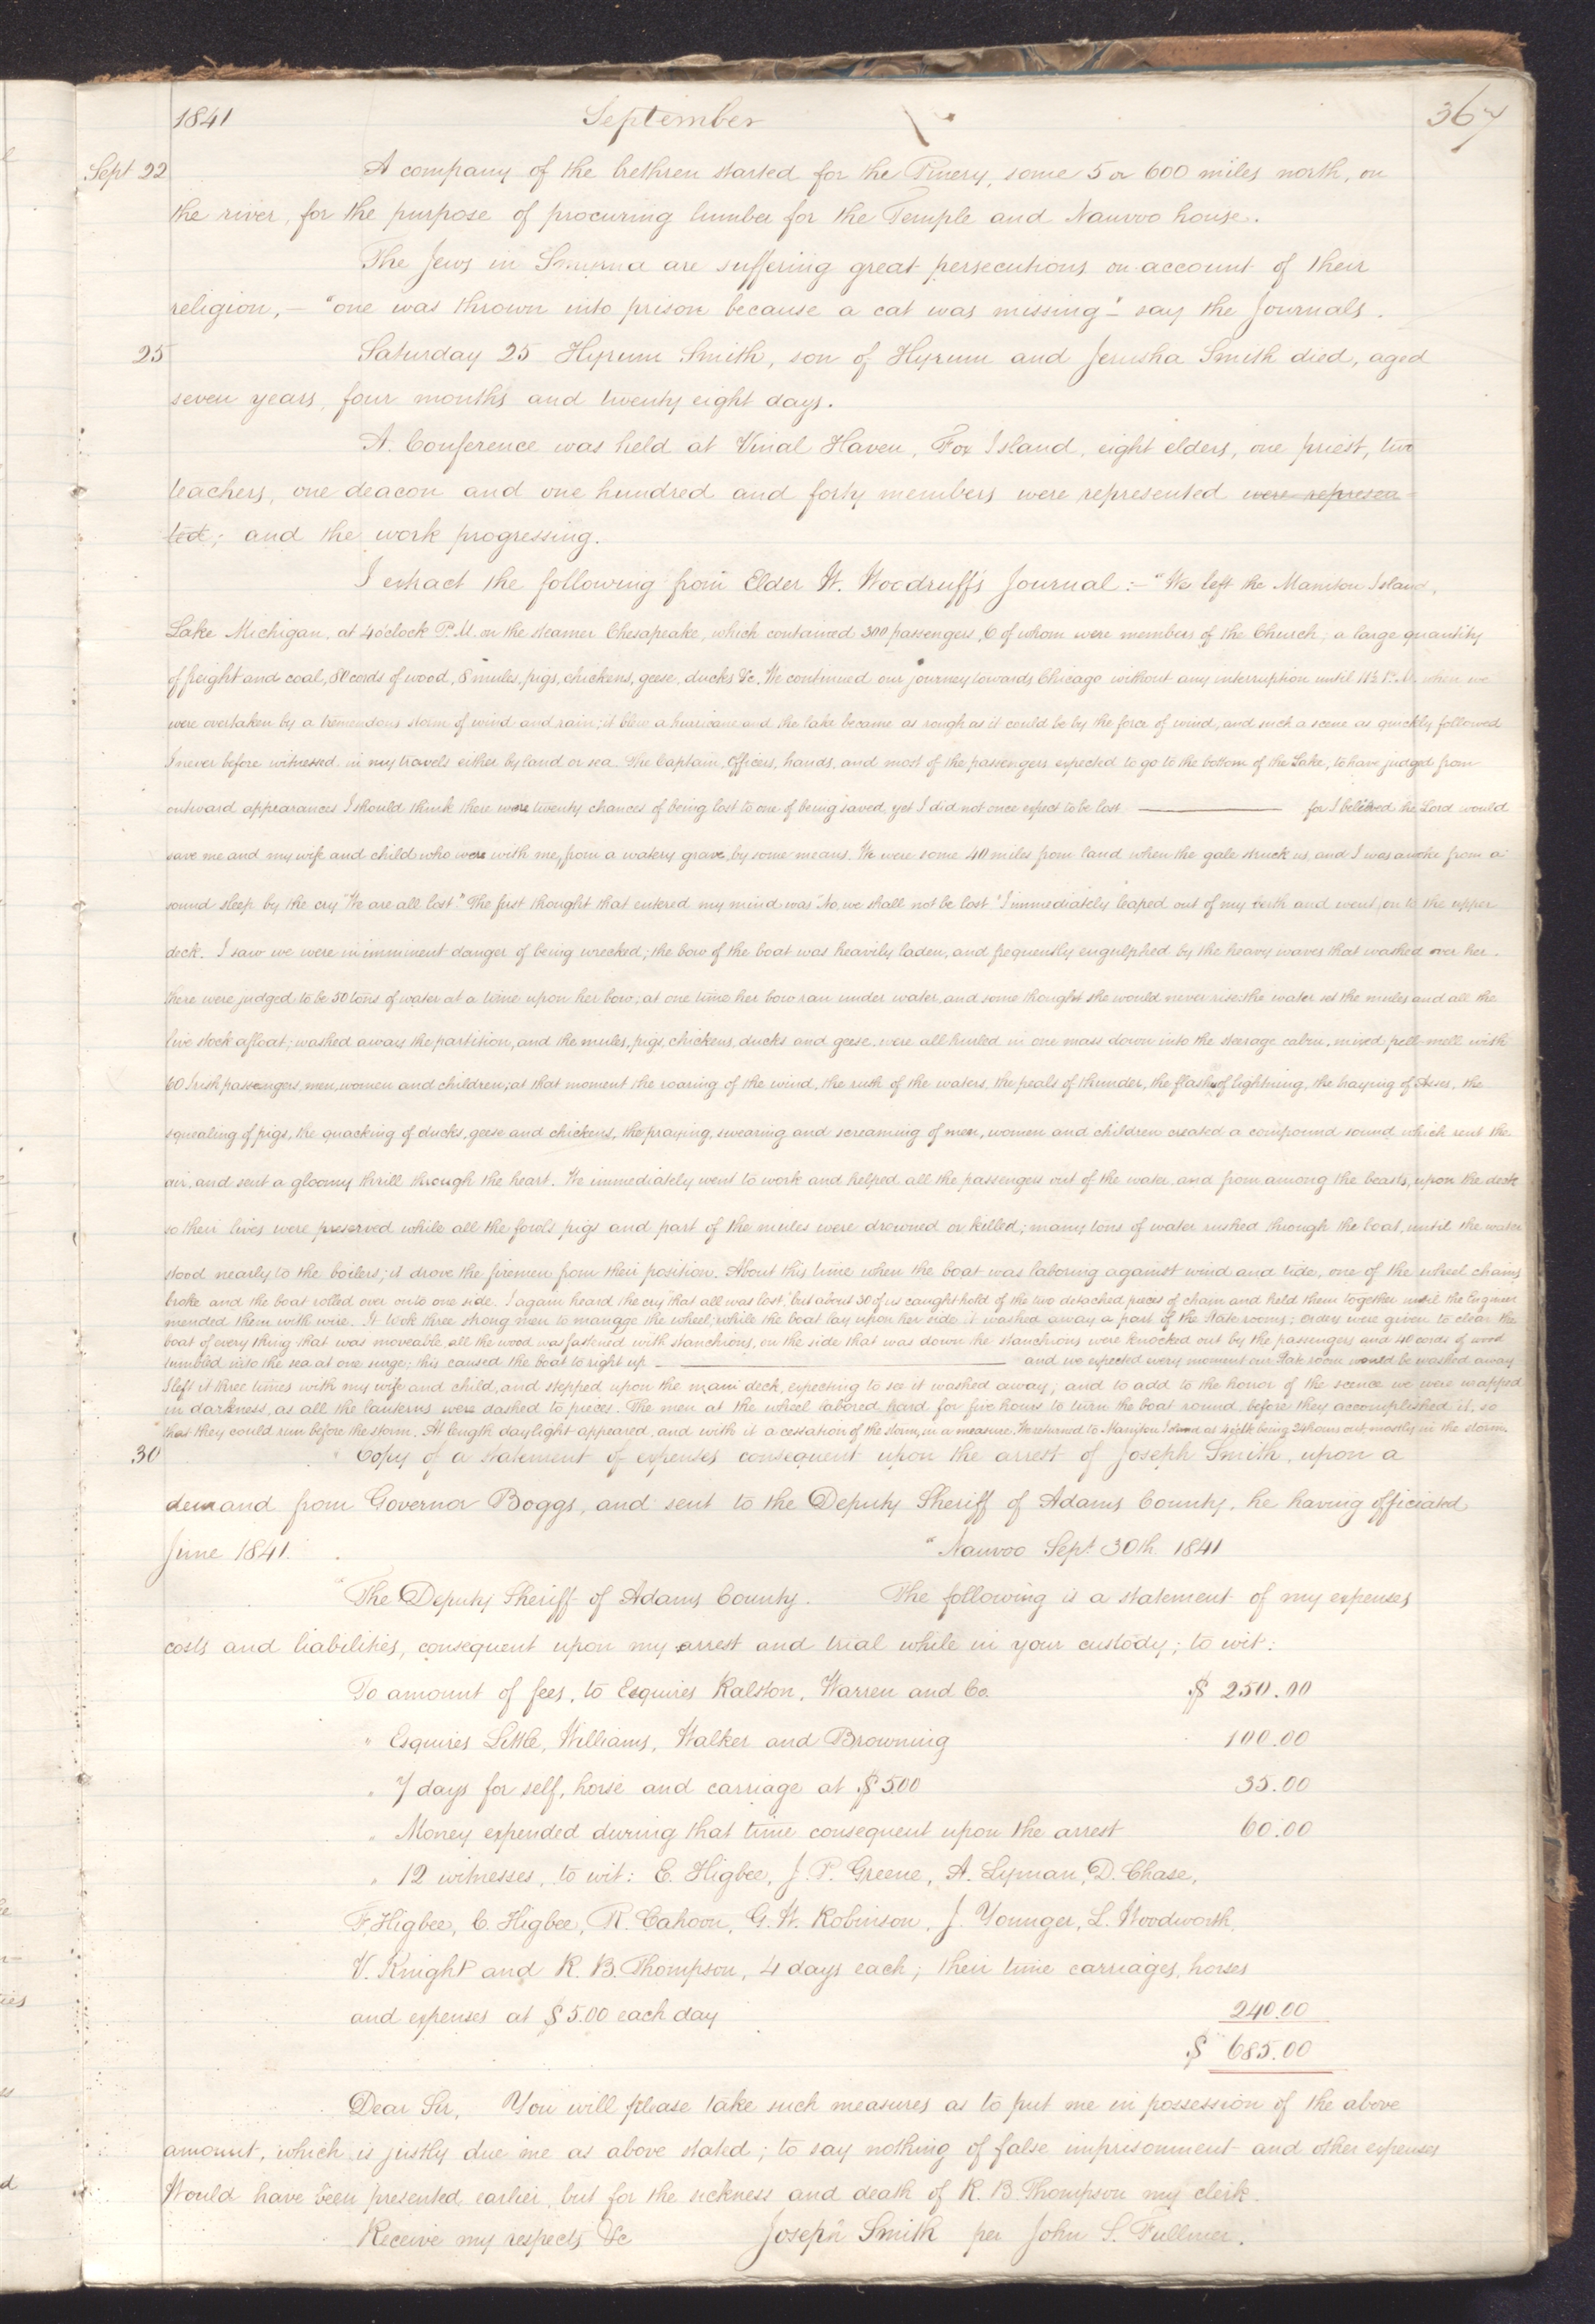 1841 September 367
Sept 22 A company of the brethren started for the Pinery, some 5 or 600 miles north, on
the river, for the purpose of procuring lumber for the Temple and Nauvoo house.
The Jews in Smyrna are suffering great persecutions on account of their
religion,— "one was thrown into prison because a cat was missing"— say the Journals.
25 Saturday 25 Hyrum Smith, son of Hyrum and Jerusha Smith died, aged
seven years, four months and twenty eight days.
A Conference was held at Vinal Haven, Fox Island, eight elders, one priest, two
teachers, one deacon and one hundred and forty members were represented were represen
ted; and the work progressing.
I extract the following from Elder W. Woodruff's Journal:— "We left the Manitou Island,
Lake Michigan, at 4 o'clock P.M. on the steamer Chesapeake, which contained 300 passengers, 6 of whom were members of the Church; a large quantity
of freight and coal, 80 cords of wood, 8 mules, pigs, chickens, geese, ducks &c. We continued our journey towards Chicago without any interruption until 11½ P.M. when we
were overtaken by a tremendous storm of wind and rain; it blew a hurricane and the lake became as rough as it could be by the force of wind, and such a scene as quickly followed
I never before witnessed in my travels either by land or sea. The Captain, Officers, hands, and most of the passengers expected to go to the bottom of the Lake, to have judged from
outward appearances I should think there were twenty chances of being lost to one of being saved, yet I did not once expect to be lost ——— for I believed the Lord would
save me and my wife and child who were with me, from a watery grave, by some means. We were some 40 miles from land when the gale struck us, and I was awoke from a
sound sleep by the cry "We are all lost." The first thought that entered my mind was "No, we shall not be lost" I immediately leaped out of my berth and went on to the upper
deck. I saw we were in imminent danger of being wrecked; the bow of the boat was heavily laden, and frequently engulphed by the heavy waves that washed over her.
there were judged to be 50 tons of water at a time upon her bow; at one time her bow ran under water, and some thought she would never rise: the water set the mules and all the
live stock afloat; washed away the partition, and the mules, pigs, chickens, ducks and geese, were all hurled in one mass down into the steerage cabin, mixed pell-mell with
60 Irish passengers, men, women and children; at that moment the roaring of the wind, the rush of the waters, the peals of thunder, the flashes of lightning, the braying of Asses, the
squealing of pigs, the quacking of ducks, geese and chickens, the praying, swearing and screaming of men, women and children created a compound sound which rent the
air, and sent a gloomy thrill through the heart. We immediately went to work and helped all the passengers out of the water and from among the beasts, upon the deck
so their lives were preserved while all the fowls pigs and part of the mules were drowned or killed; many tons of water rushed through the boat, until the water
stood nearly to the boilers; it drove the firemen from their position. About this time when the boat was laboring against wind and tide, one of the wheel chains
broke and the boat rolled over onto one side. I again heard the cry "that all was lost," but about 30 of us caught hold of the two detached pieces of chain and held them together until the Engineer
mended them with wire. It took three strong men to manage the wheel; while the boat lay upon her side it washed away a part of the State rooms; orders were given to clear the
boat of every thing that was moveable, all the wood was fastened with stanchions, on the side that was down the stanchions were knocked out by the passengers and 40 cords of wood
tumbled into the sea at one surge; this caused the boat to right up ——— and we expected every moment our State room would be washed away
I left it three times with my wife and child, and stepped upon the main deck, expecting to see it washed away; and to add to the horror of the scence we were wrapped
in darkness, as all the lanterns were dashed to pieces. The men at the wheel labored hard for five hours to turn the boat round, before they accomplished it, so
that they could run before the storm. At length daylight appeared, and with it a cessation of the storm, in a measure. We returned to Manitou Island at 4 o'clk being 24 hours out, mostly in the storm
30 "Copy of a statement of expenses consequent upon the arrest of Joseph Smith, upon a
demand from Governor Boggs, and sent to the Deputy Sheriff of Adams County, he having officiated
June 1841. "Nauvoo Sept. 30th. 1841
"The Deputy Sheriff of Adams County. The following is a statement of my expenses
costs and liabilities, consequent upon my arrest and trial while in your custody; to wit:
To amount of fees, to Esquires Ralston, Warren and Co. $ 250.00
" Esquires Little, Williams, Walker and Browning 100.00
" 7 days for self, horse and carriage at $5.00 35.00
" Money expended during that time consequent upon the arrest 60.00
" 12 witnesses, to wit: E. Higbee, J. P. Greene, A. Lyman, D. Chase,
F. Higbee, C. Higbee, R. Cahoon, G. W. Robinson, J. Younger, L. Woodworth,
V. Knight and R. B. Thompson, 4 days each; their time carriages, horses
and expenses at $5.00 each day 240.00
$ 685.00
Dear Sir, You will please take such measures as to put me in possession of the above
amount, which is justly due me as above stated; to say nothing of false imprisonment and other expenses
Would have been presented earlier, but for the sickness and death of R. B. Thompson my clerk.
Receive my respects &c Joseph Smith per John S. Fullmer.